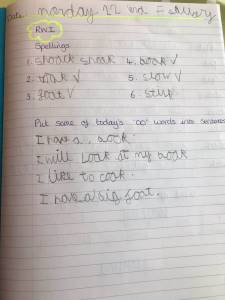 Date: monday 22 nd Febuery
RWI
Spellings
1. shoock shook 4. book ✓
2. took ✓ 5. slow ✓
3. foot ✓ 6. stey
Put some of today's 'oo' words into sentences
I have a book.
I will look at my book
I like to cook.
I have a big foot.